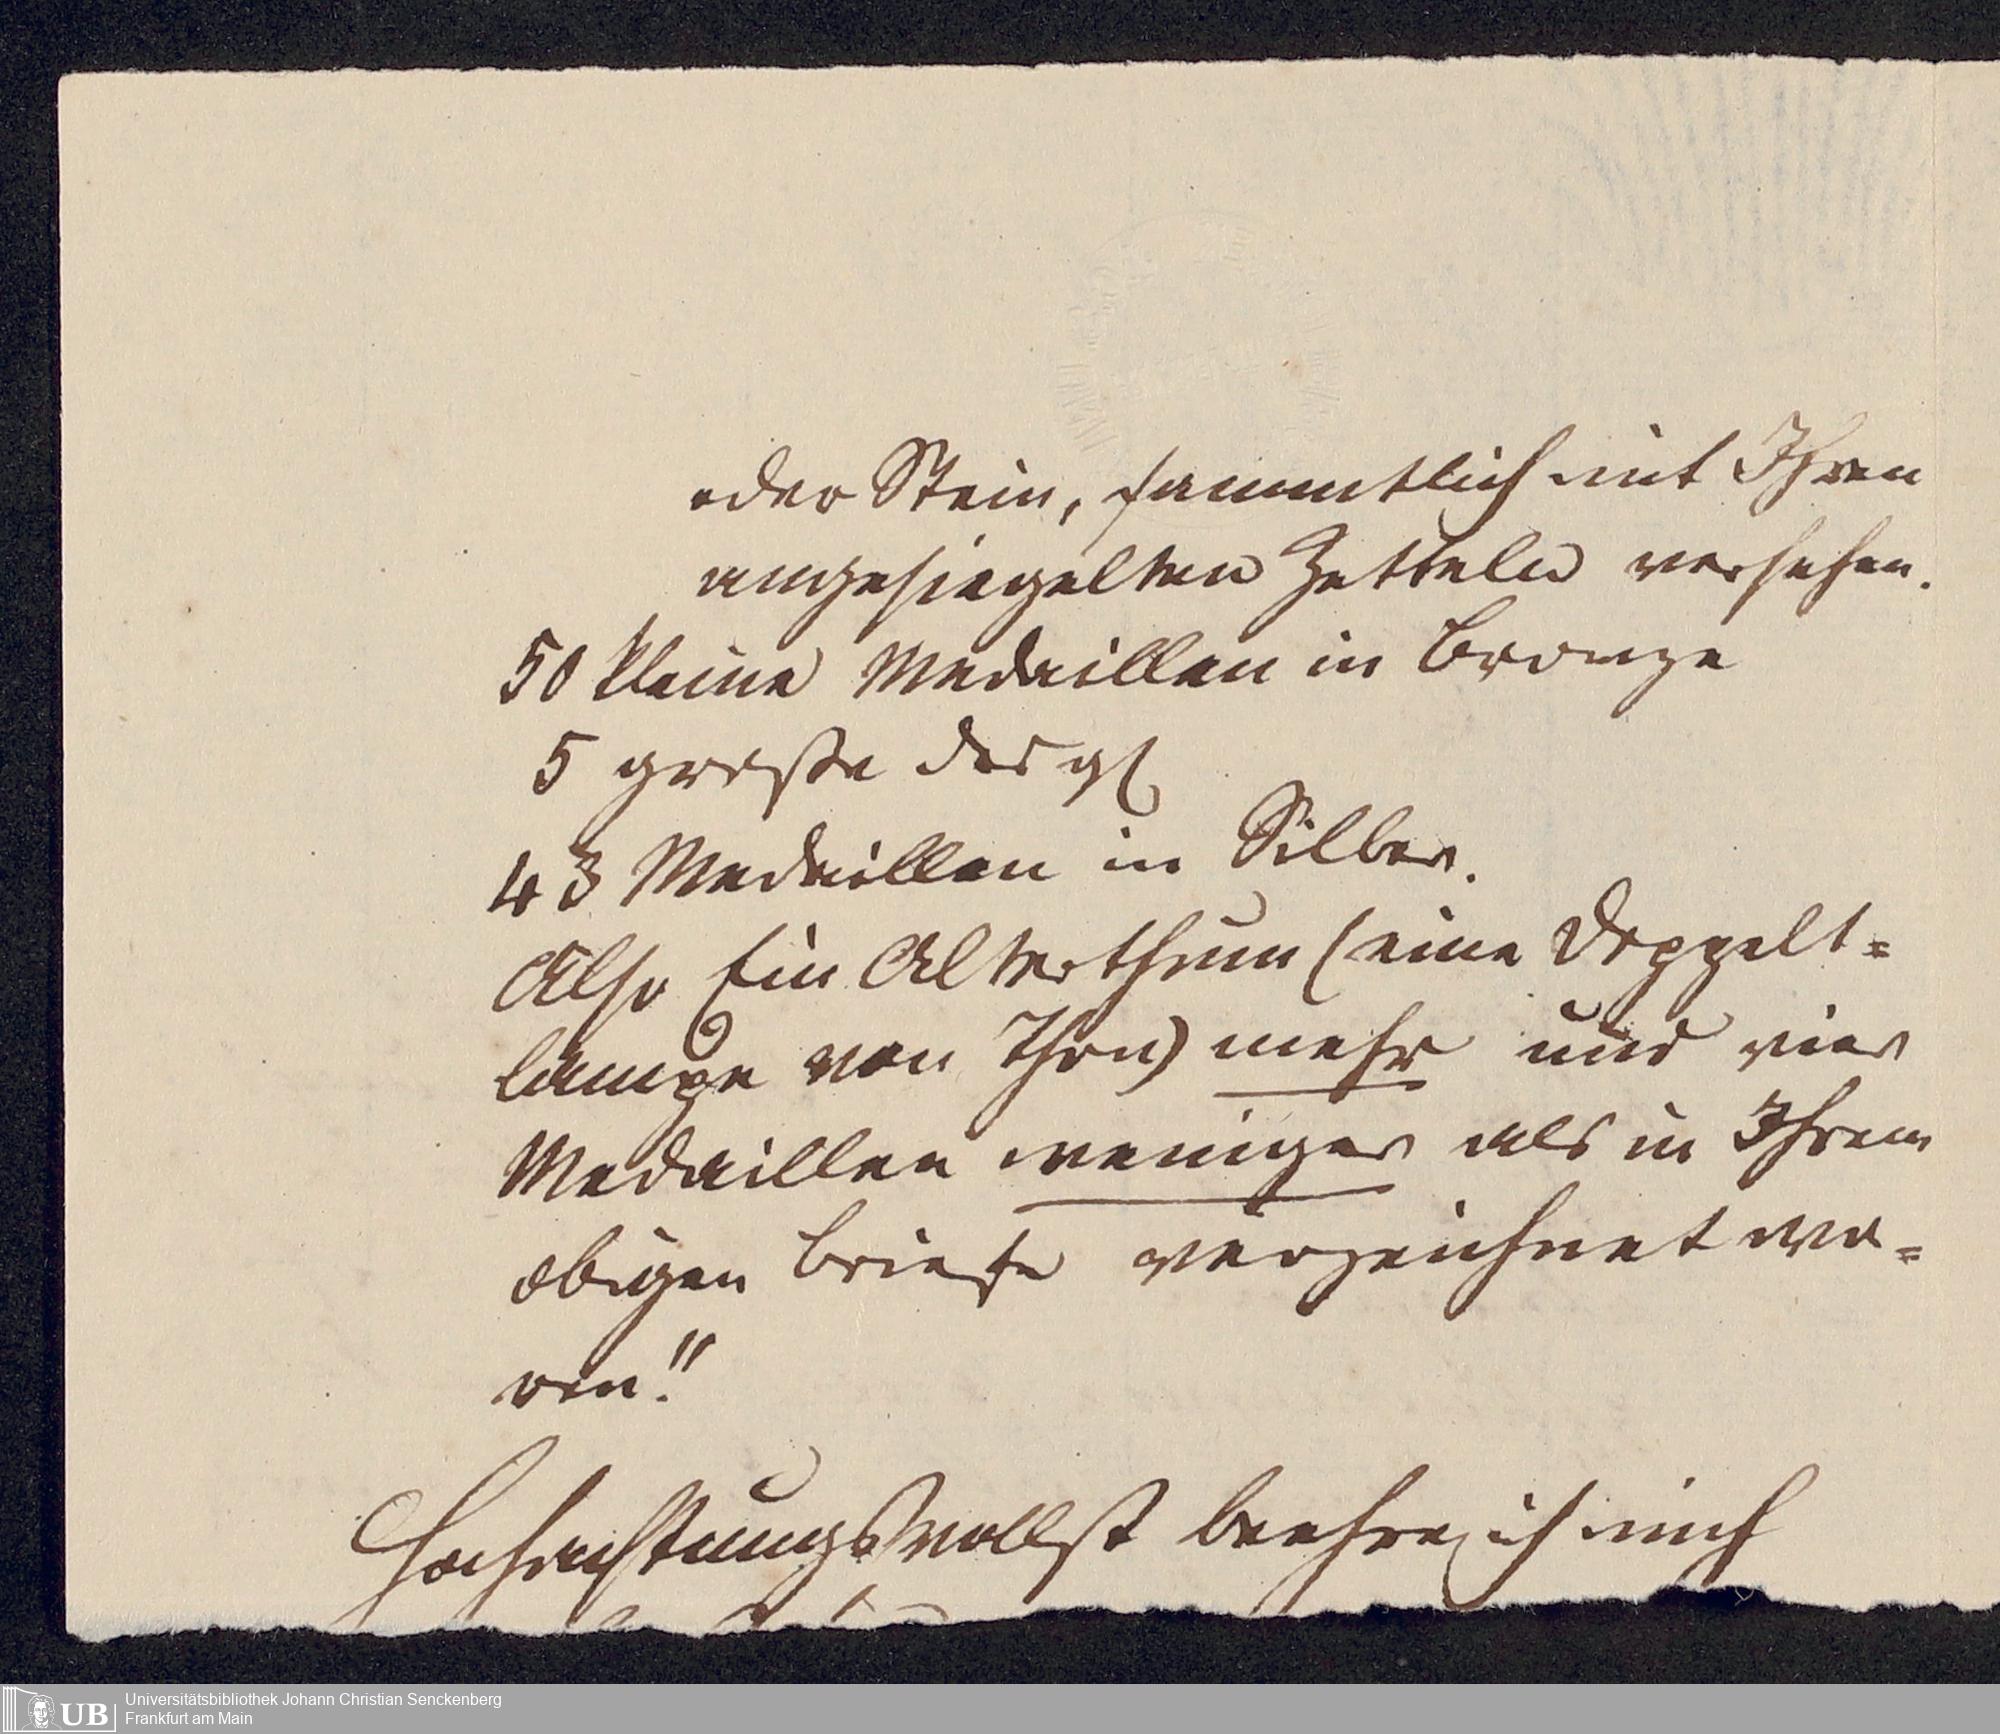 oder Stein, sammtlich mit Ihren
angesiegelten Zetteln versehen.
50 kleine Medaillen in Bronze
5 große desgl
43 Medaillen in Silber.
Also Ein Alterthum (eine Doppelt=
lampe von Thon) mehr und vier
Medaillen weniger als in Ihrem
obigen Briefe verzeichnet wa=
ren!"
Hochachtungsvollst beehre ich mich
UB
Universitätsbibliothek Johann Christian Senckenberg
Frankfurt am Main